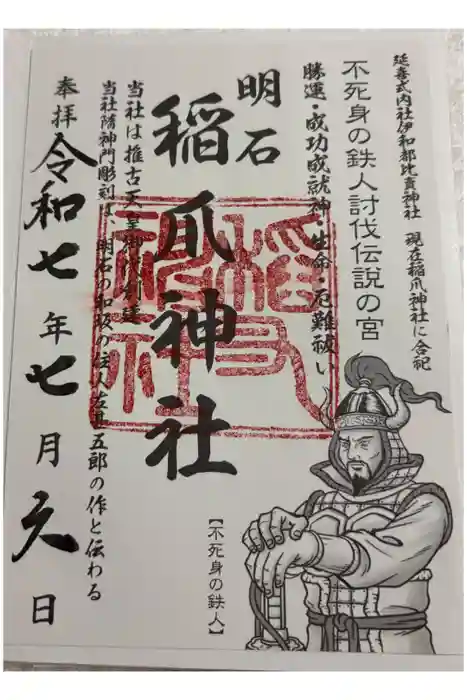 延喜式内社伊和都比賣神社 現在稲爪神社に合祀
不死身の鉄人討伐伝説の宮
勝運・成功成就神 生命・厄難祓い
明石
稲爪神社
当社は推古天皇御代創建
当社隋神門彫刻は、明石の和坂の住人左甚五郎の作と伝わる
奉拝
令和七年七月六日
【不死身の鉄人】
稲爪神社